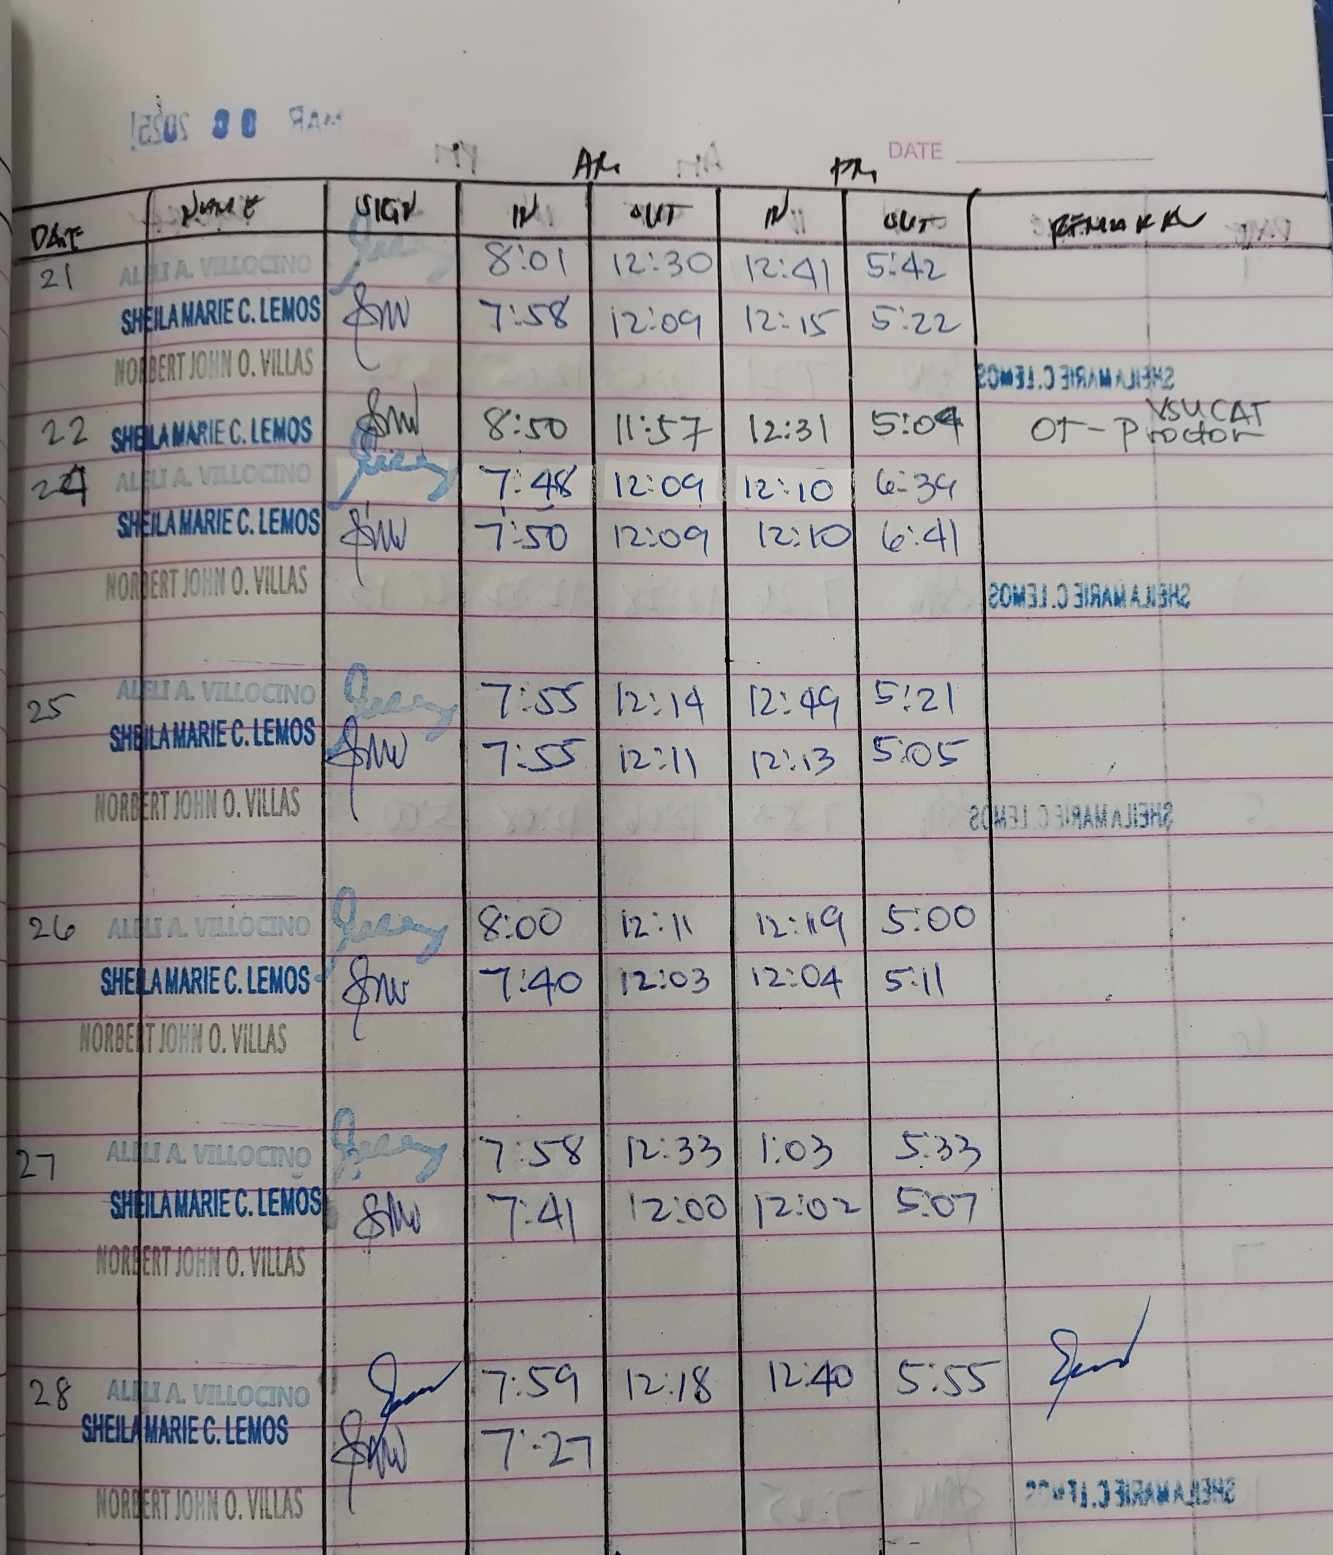 MAR 08 2025
AM PM DATE
DATE NAME SIGN IN OUT IN OUT REMARKS
21 ALELI A. VILLOCINO 8:01 12:30 12:41 5:42
SHEILA MARIE C. LEMOS 7:58 12:09 12:15 5:22
NORBERT JOHN O. VILLAS
SHEILA MARIE C. LEMOS
22 SHEILA MARIE C. LEMOS 8:50 11:57 12:31 5:04 OT - Proctor VSUCAT
24 ALELI A. VILLOCINO 7:48 12:09 12:10 6:39
SHEILA MARIE C. LEMOS 7:50 12:09 12:10 6:41
NORBERT JOHN O. VILLAS
SHEILA MARIE C. LEMOS
25 ALELI A. VILLOCINO 7:55 12:14 12:49 5:21
SHEILA MARIE C. LEMOS 7:55 12:11 12:13 5:05
NORBERT JOHN O. VILLAS
SHEILA MARIE C. LEMOS
26 ALELI A. VILLOCINO 8:00 12:11 12:19 5:00
SHEILA MARIE C. LEMOS 7:40 12:03 12:04 5:11
NORBERT JOHN O. VILLAS
27 ALELI A. VILLOCINO 7:58 12:33 1:03 5:33
SHEILA MARIE C. LEMOS 7:41 12:00 12:02 5:07
NORBERT JOHN O. VILLAS
28 ALELI A. VILLOCINO 7:59 12:18 12:40 5:55
SHEILA MARIE C. LEMOS 7:27
NORBERT JOHN O. VILLAS
SHEILA MARIE C. LEMOS